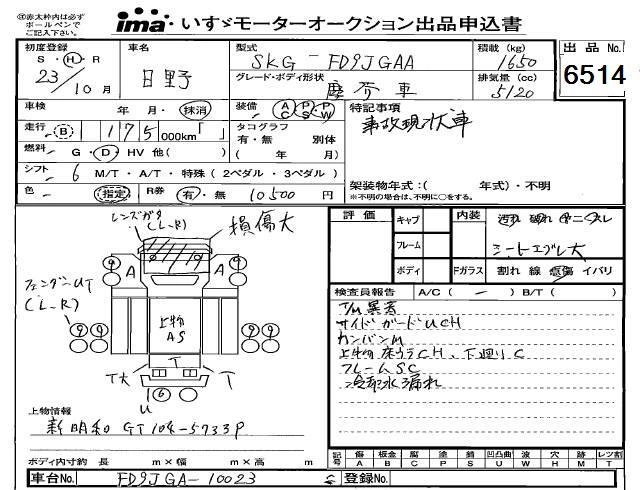 ◎赤太枠内は必ず
ボールペンで
ご記入下さい。
ima いすゞモーターオークション出品申込書
初度登録
S・H・R
23/10月
車名
日野
型式
SKG-FD9JGAA
グレード・ボディ形状
塵芥車
積載 (kg)
1650
排気量 (cc)
5120
出品No.
6514
車検 年 月・抹消
装備 AC PS PW
特記事項
事故現状車
走行 B 175,000km「 」
タコグラフ 有・無 別体
( 年 月)
燃料 G・D・HV 他( )
シフト 6 M/T・A/T・特殊(2ペダル・3ペダル)
架装物年式:( 年式)・不明
※不明の場合は、不明に○をする。
色 (指定) R券 有・無 10500円
レンズガタ
(L-R)
損傷大
フェンダーUT
(L-R)
A
A
上物
AS
T
T大
T
U
6
評価
キャブ
フレーム
ボディ
内装
シートエグレ大
Fガラス 割れ 線 飛傷 イバリ
検査員報告 A/C(-) B/T( )
T/M異音
サイドガードUCH
カンバンM
上物床うらCH、下廻りC
フレームSC
冷却水漏れ
上物情報
新明和 GT104-5733P
ボディ内寸約 長 m×幅 m×高 m
記号
傷 A
板金 B
腐 C
塗 P
錆 S
凹凸曲 U
波 W
穴 H
跡 M
レンズ割 T
車台No. FD9JGA-10023
登録No.